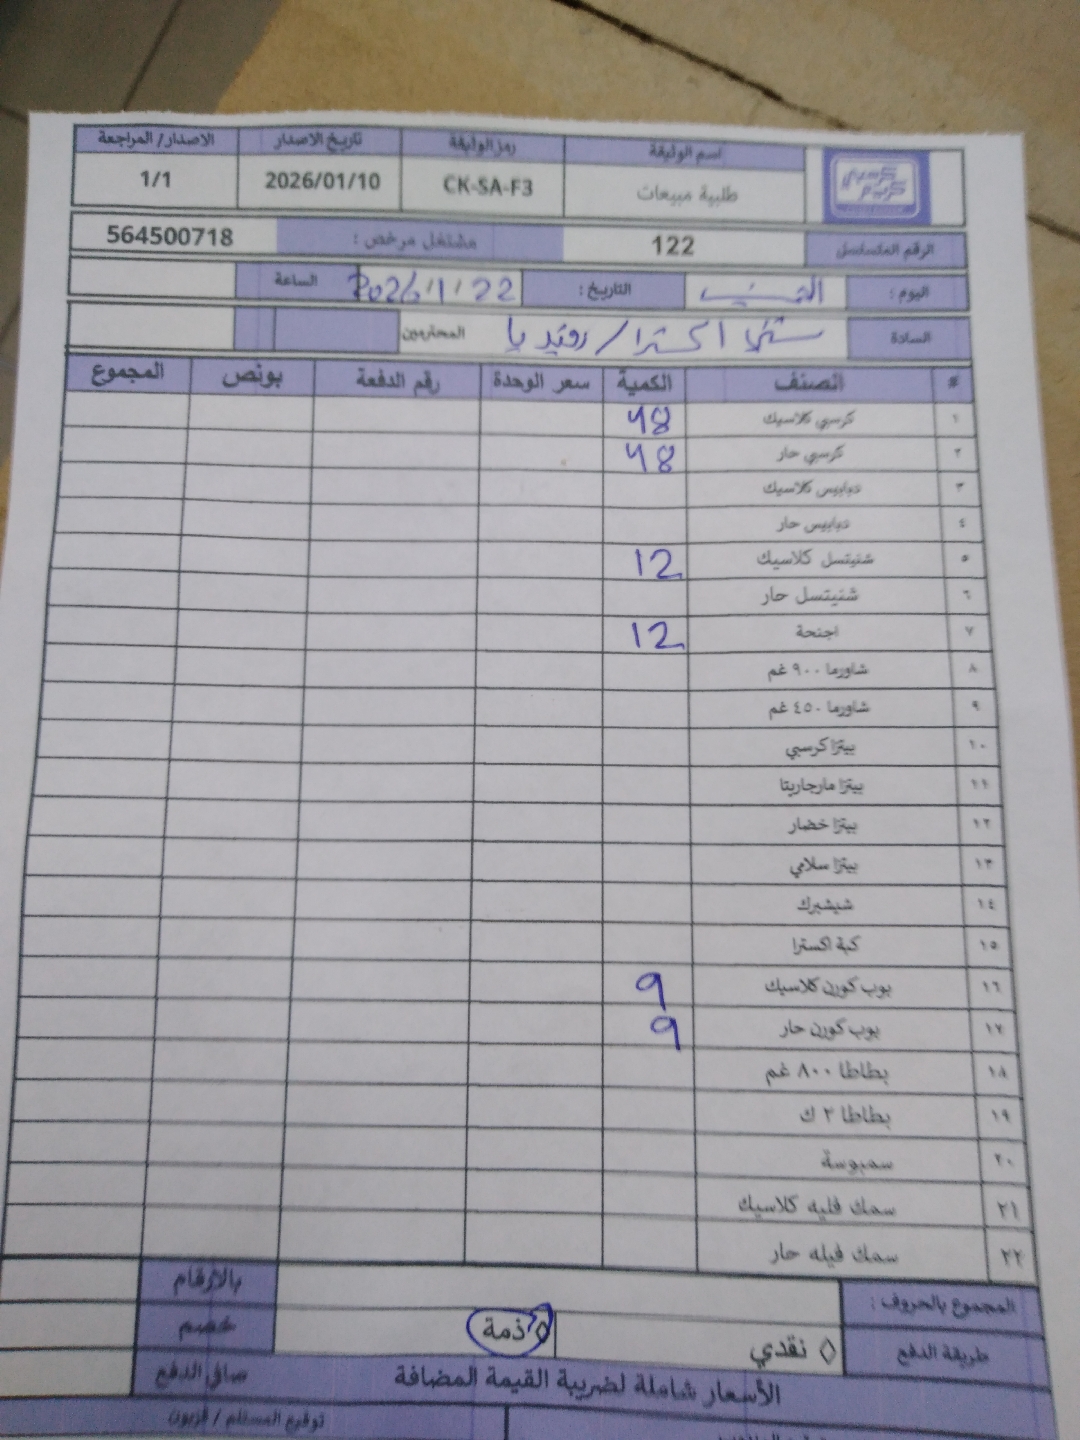 كرسبي كريم
اسم الوثيقة رمز الوثيقة تاريخ الاصدار الاصدار/ المراجعة
طلبية مبيعات CK-SA-F3 2026/01/10 1/1
الرقم المتسلسل 122 مشتغل مرخص : 564500718
اليوم : التاريخ : 2026/1/22 الساعة
السادة اكسترا / المحترمين
# الصنف الكمية سعر الوحدة رقم الدفعة بونص المجموع
١ كرسبي كلاسيك 48
٢ كرسبي حار 48
٣ دبابيس كلاسيك
٤ دبابيس حار
٥ شنيتسل كلاسيك 12
٦ شنيتسل حار
٧ اجنحة 12
٨ شاورما ٩٠٠ غم
٩ شاورما ٤٥٠ غم
١٠ بيتزا كرسبي
١١ بيتزا مارجاريتا
١٢ بيتزا خضار
١٣ بيتزا سلامي
١٤ شيشبرك
١٥ كبة اكسترا
١٦ بوب كورن كلاسيك 9
١٧ بوب كورن حار 9
١٨ بطاطا ٨٠٠ غم
١٩ بطاطا ٢ ك
٢٠ سمبوسة
٢١ سمك فليه كلاسيك
٢٢ سمك فيله حار
المجموع بالحروف : بالارقام
طريقة الدفع ◊ نقدي ◊ ذمة خصم
الأسعار شاملة لضريبة القيمة المضافة صافي الدفع
توقيع المستلم / الزبون